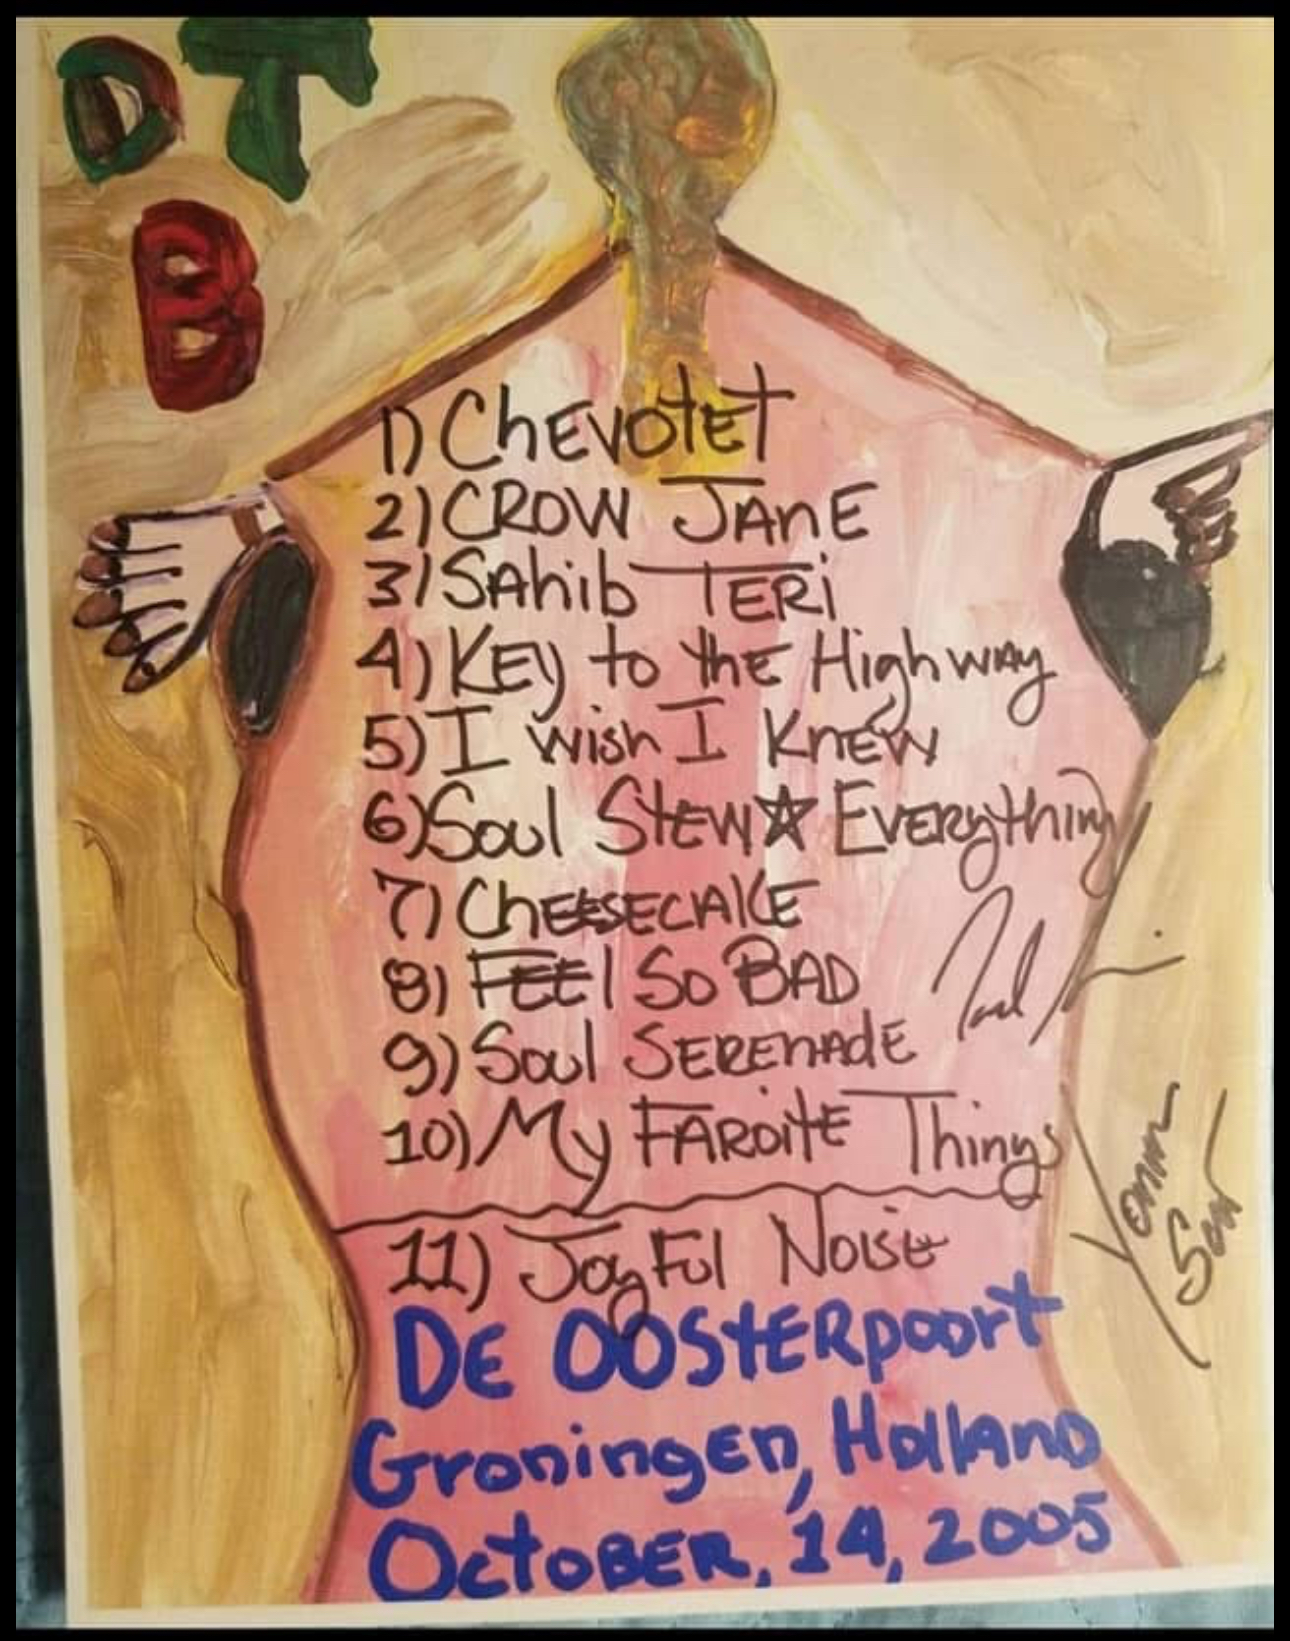 DT
B
1) ChEVOtET
2) CROW JAnE
3) SAhib TERi
4) KEy to thE Highway
5) I wish I KnEW
6) Soul StEW☆ EVERything
7) ChEESECAKE
8) FEEl So BAD
9) Soul SEREnAdE
10) My FARoitE Things
11) JoyFul NoisE
DE OOStERpoort
GroningEn, HollAnD
OctoBER, 14, 2005